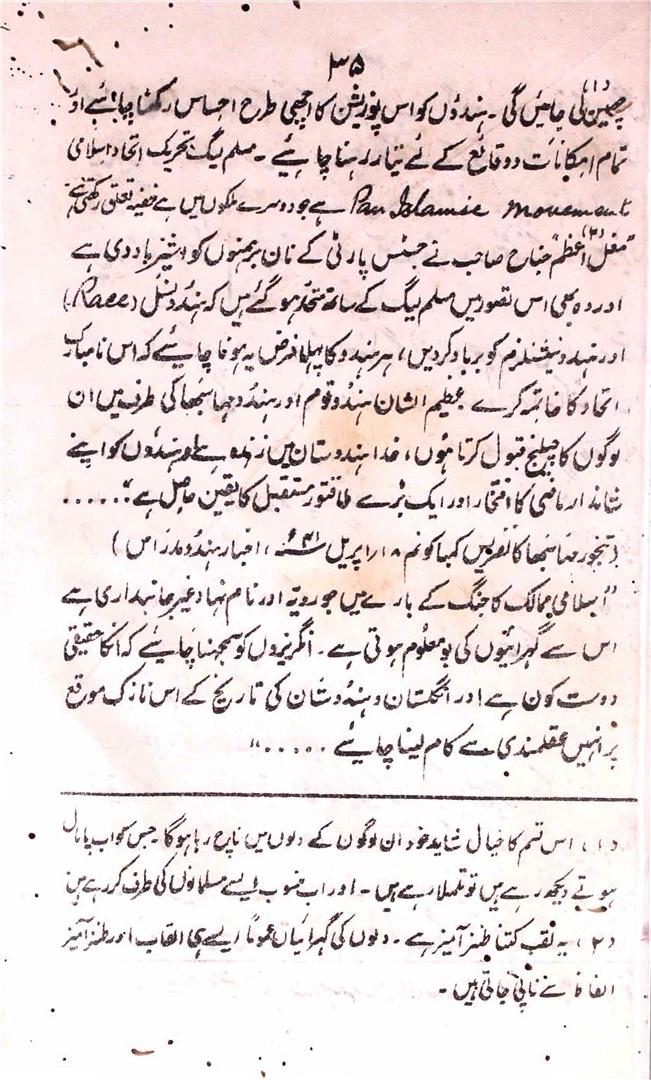 ۳۵
چھین لی جائیں گی ۔ ہندوں کو اس پوزیشن کا اچھی طرح احساس رکھنا چاہئے اور
(۱)
تمام امکانات و وقائع کے لئے تیار رہنا چاہیے ۔ مسلم لیگ تحریک اتحاد اسلامی
Pan Islamic movement ہے جو دوسرے ملکوں میں ہے خفیہ تعلق رکھتی ہے
"مغل اعظم" جناح صاحب نے جسٹس پارٹی کے نان برہمنوں کو اشیرباد دی ہے
(۲)
اور وہ بھی اس تصور میں مسلم لیگ کے ساتھ متحد ہو گئے ہیں کہ ہندو نسل (Race)
اور ہندو نیشنلزم کو برباد کر دیں، ہر ہندو کا پہلا فرض یہ ہونا چاہیے کہ اس نامبارک
اتحاد کا خاتمہ کرے عظیم الشان ہندو قوم اور ہندو مہا سبھا کی طرف میں ان
لوگوں کا چیلنج قبول کرتا ہوں، خدا ہندوستان میں زندہ ہے اور ہندوں کو اپنے
شاندار ماضی کا افتخار اور ایک بڑے طاقتور مستقبل کا یقین حاصل ہے" .....
( تنجور مہا سبھا کانفرنس کمباکونم ۸ ار اپریل ۴۱ء ، اخبار ہندو مدراس )
"اسلامی ممالک کا جنگ کے بارے میں جو رویہ اور نام نہاد غیر جانبداری ہے
اس سے گہرائیوں کی بو معلوم ہوتی ہے ۔ انگریزوں کو سمجھنا چاہیے کہ انکا حقیقی
دوست کون ہے اور انگلستان و ہندوستان کی تاریخ کے اس نازک موقع
پر انہیں عقلمندی سے کام لینا چاہئے ....."
(۱) اس قسم کا خیال شاید خود ان لوگوں کے دلوں میں ناچ رہا ہو گا ۔ جس کو اب پامال
ہوتے دیکھ رہے ہیں تو تلملا رہے ہیں ۔ اور اب منسوب ایسے مسلمانوں کی طرف کر رہے ہیں
(۲) یہ لقب کتنا طنز آمیز ہے ۔ دلوں کی گہرائیاں عموماً ایسے ہی القاب اور طنز آمیز
الفاظ سے ناپی جاتی ہیں ۔